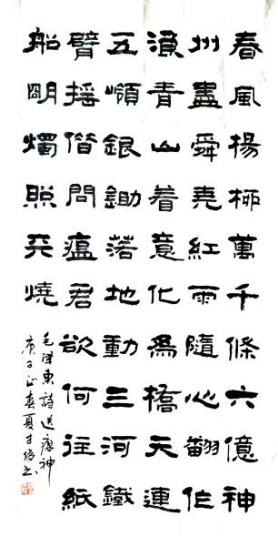 春風楊柳萬千條六億神
州盡舜堯紅雨隨心翻作
浪青山着意化為橋天連
五嶺銀鋤落地動三河鐵
臂搖借問瘟君欲何往紙
船明燭照天燒
毛澤東詩送瘟神
庚子